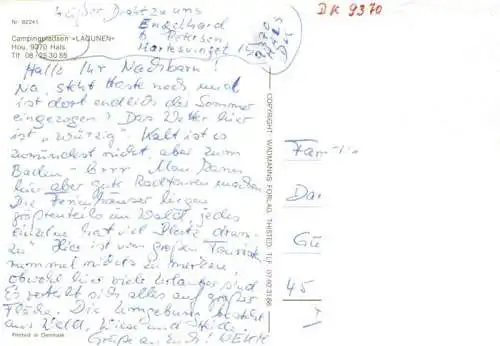 DK 9370
Nr. 82241
Campingpladsen »LAGUNEN«
Hou, 9370 Hals
Tlf. 08-25 30 55
heißer Draht zu uns
Engelhard
b. Petersen
Mortesvinget 15
9370
HALS
DK
Hallo Ihr Nachbarn!
Na, steht Haste noch und
ist dort endlich der Sommer
eingezogen? Das Wetter hier
ist „würzig“. Kalt ist es
zumindest nicht, aber zum
Baden - Brrr. Man kann
hier aber gute Radtouren machen.
Die Ferienhäuser liegen
größtenteils im Wald, jedes
einzelne hat viel Platz drum-
zu. Hier ist vom großen Touristen-
rummel nichts zu merken,
obwohl hier viele Urlauber sind.
Es verteilt sich alles auf großer
Fläche. Die Umgebung besteht
aus Wald, Wiese und Heide.
Grüße an Euch!
Printed in Denmark
COPYRIGHT WADMANNS FORLAG, THISTED. TLF.
Fam
Da
Gü
45